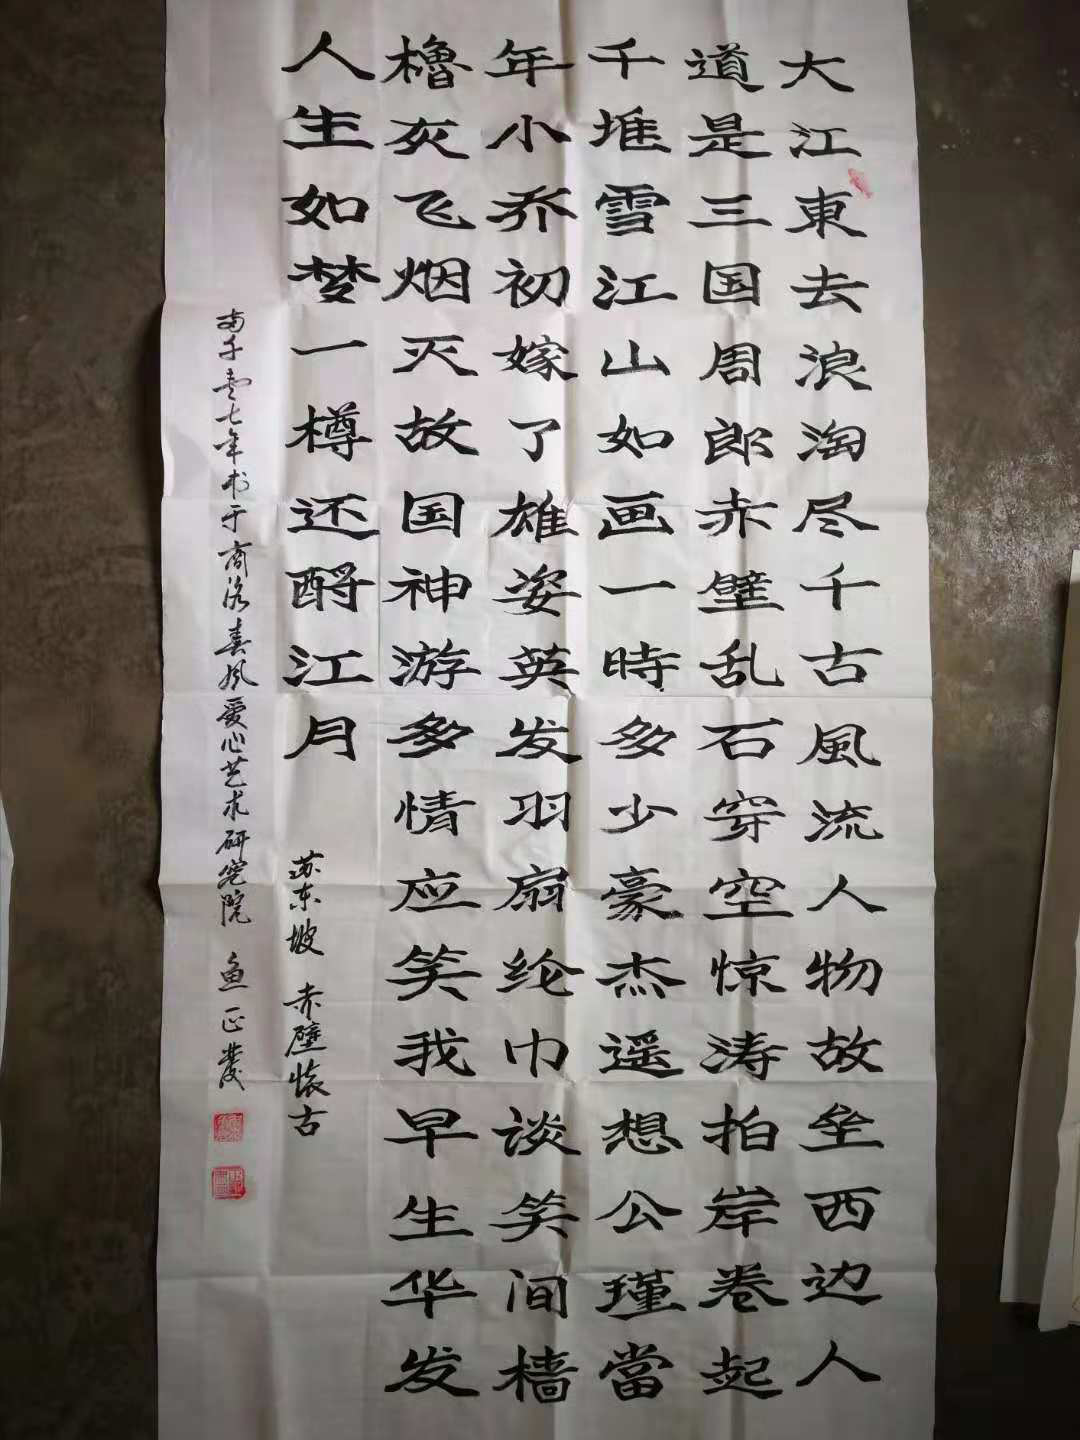 大江東去浪淘尽千古風流人物故垒西边人
道是三国周郎赤壁乱石穿空惊涛拍岸卷起
千堆雪江山如画一時多少豪杰遥想公瑾當
年小乔初嫁了雄姿英发羽扇纶巾谈笑间樯
橹灰飞烟灭故国神游多情应笑我早生华发
人生如梦一樽还酹江月
苏东坡 赤壁懷古
两千壹七年书于商洛春风爱心艺术研究院 鱼正